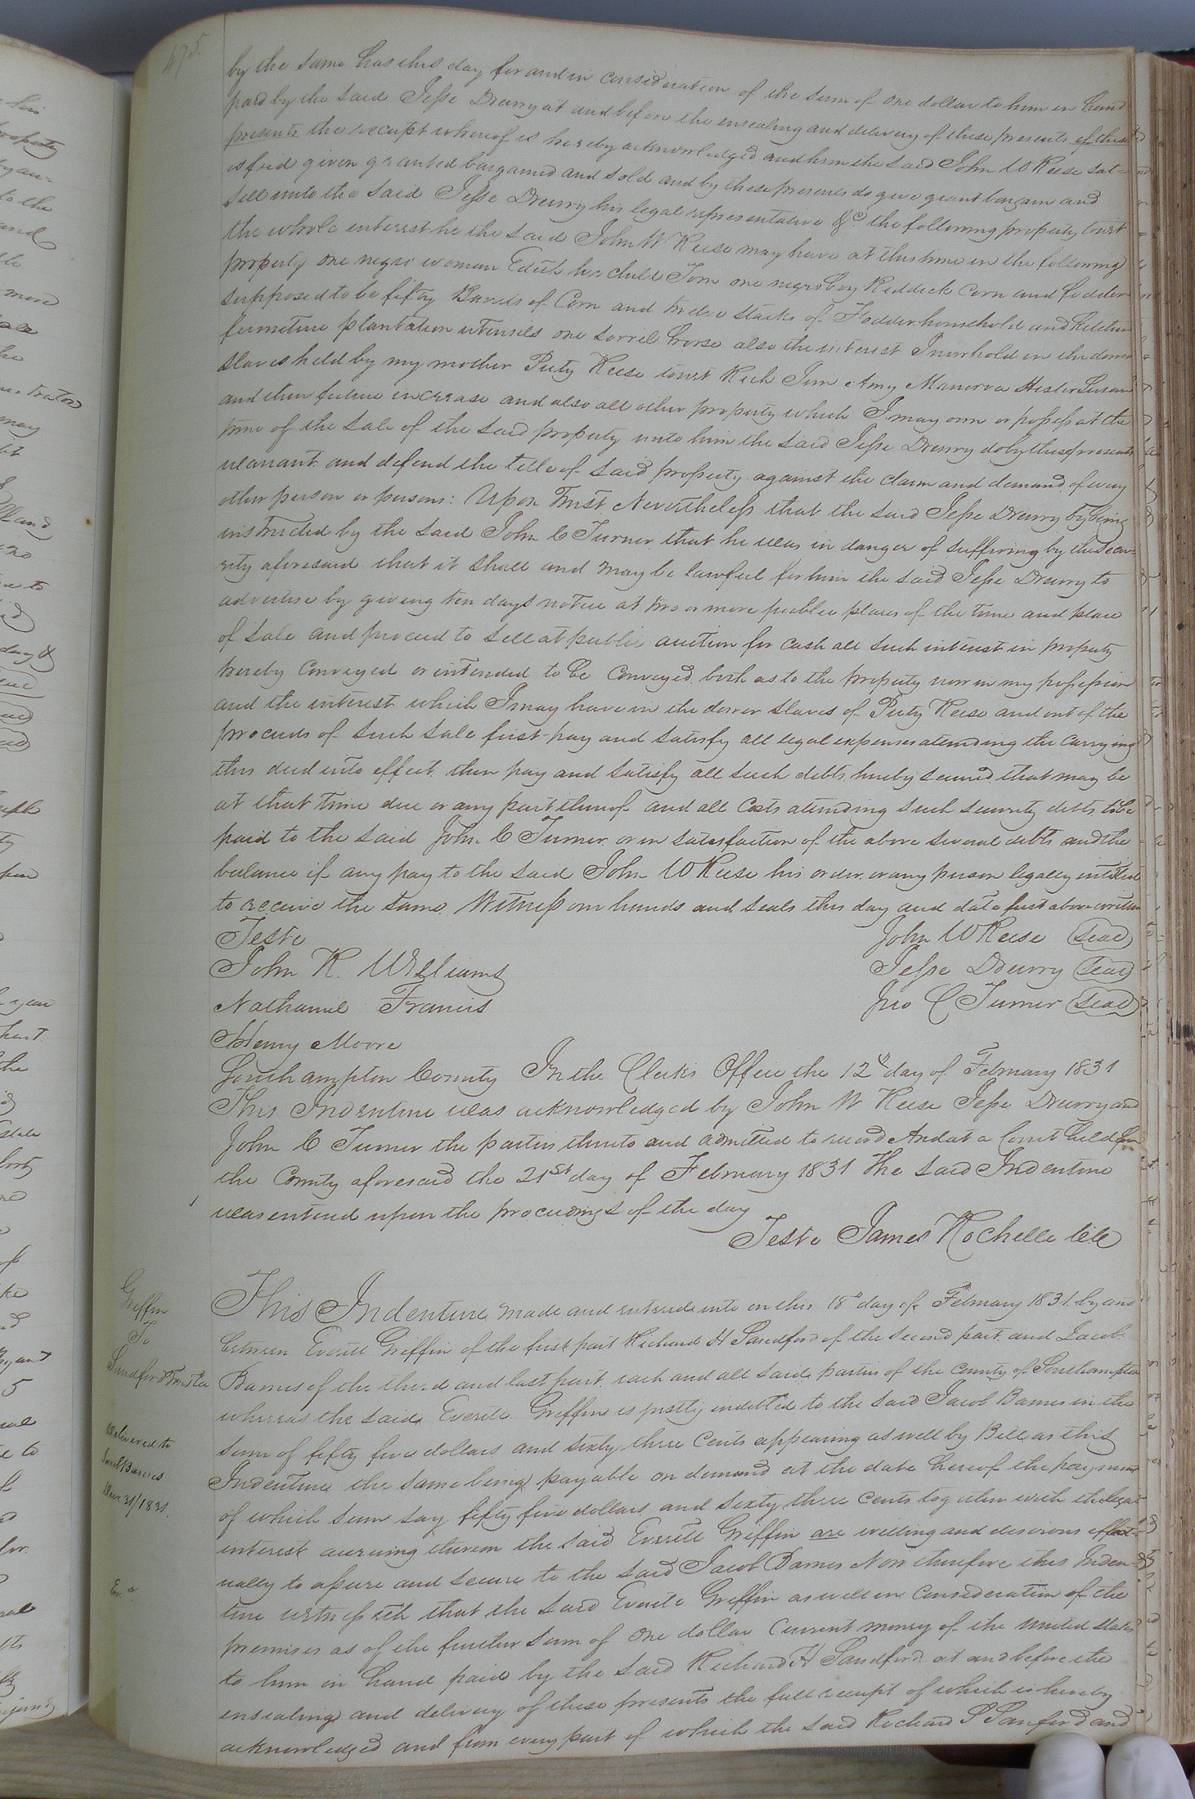 475
by the same has this day for and in consideration of the sum of one dollar to him in hand
paid by the said Jesse Drewry at and before the ensealing and delivery of these presents of these
presents the receipt whereof is hereby acknowledged and him the said John W Reese sat=
isfied given granted bargained and sold and by these presents do give grant bargain and
sell unto the said Jesse Drewry his legal representative &c the following property to wit
the whole interest he the said John W Reese may have at this time in the following
property one negro woman Edith her child Tom one negro boy Reddick Corn and fodder
supposed to be fifty Barrels of Corn and stacks of Fodder household and Kitchen
furniture plantation utensils one sorrel horse also the interest I now hold in the dower
slaves held by my mother Piety Reese to wit Jim Amy Manerva Hester Susan
and their future increase and also all other property which I may own or possess at the
time of the sale of the said property unto him the said Jesse Drewry do by these presents
warrant and defend the title of said property against the claim and demand of every
other person or persons: Upon Trust Nevertheless that the said Jesse Drewry by being
instructed by the said John C Turner that he was in danger of suffering by the secu-
rity aforesaid that it shall and may be lawful for him the said Jesse Drewry to
advertise by giving ten days notice at two or more public places of the time and place
of sale and proceed to sell at public auction for cash all such interest in property
hereby conveyed or intended to be conveyed both as to the property now in my possession
and the interest which I may have in the dower slaves of Piety Reese and out of the
proceeds of such sale first pay and satisfy all legal expenses attending the carrying
this deed into effect then pay and satisfy all such debts hereby secured that may be
at that time due or any part thereof and all costs attending such security debts to be
paid to the said John C Turner or in satisfaction of the above several debts and the
balance if any pay to the said John W Reese his order or any person legally entitled
to receive the same. Witness our hands and seals this day and date first above written
Teste John W Reese (seal)
John K. Williams Jesse Drewry (seal)
Nathaniel Francis Jno C Turner (seal)
Henry Moore
Southampton County In the Clerks Office the 12th day of February 1831
This Indenture was acknowledged by John W Reese Jesse Drewry and
John C Turner the parties thereto and admitted to record And at a Court held for
the County aforesaid the 21st day of February 1831 The said Indenture
was entered upon the proceedings of the day
Teste James Rochelle
Griffin
To
Sandford Trustee
Delivered to
Jacob Barnes
31/1831.
Ex
This Indenture made and entered into on this 18 day of February 1831 by and
between Everitt Griffin of the first part Richard H Sandford of the second part and Jacob
Barnes of the third and last part each and all said parties of the County of Southampton
whereas the said Everitt Griffin is justly indebted to the said Jacob Barnes in the
sum of fifty five dollars and sixty three Cents appearing as well by Bill as this
Indenture the same being payable on demand at the date hereof the payment
of which sum say fifty five dollars and sixty three cents together with the legal
interest accruing thereon the said Everitt Griffin are willing and desirous effect-
ually to assure and secure to the said Jacob Barnes Now therefore this Inden-
ture witnesseth that the said Everitt Griffin as well in consideration of the
premises as of the further sum of one dollar Current money of the United States
to him in hand paid by the said Richard H Sandford at and before the
ensealing and delivery of these presents the full receipt of which is hereby
acknowledged and from every part of which the said Richard S Sanford and